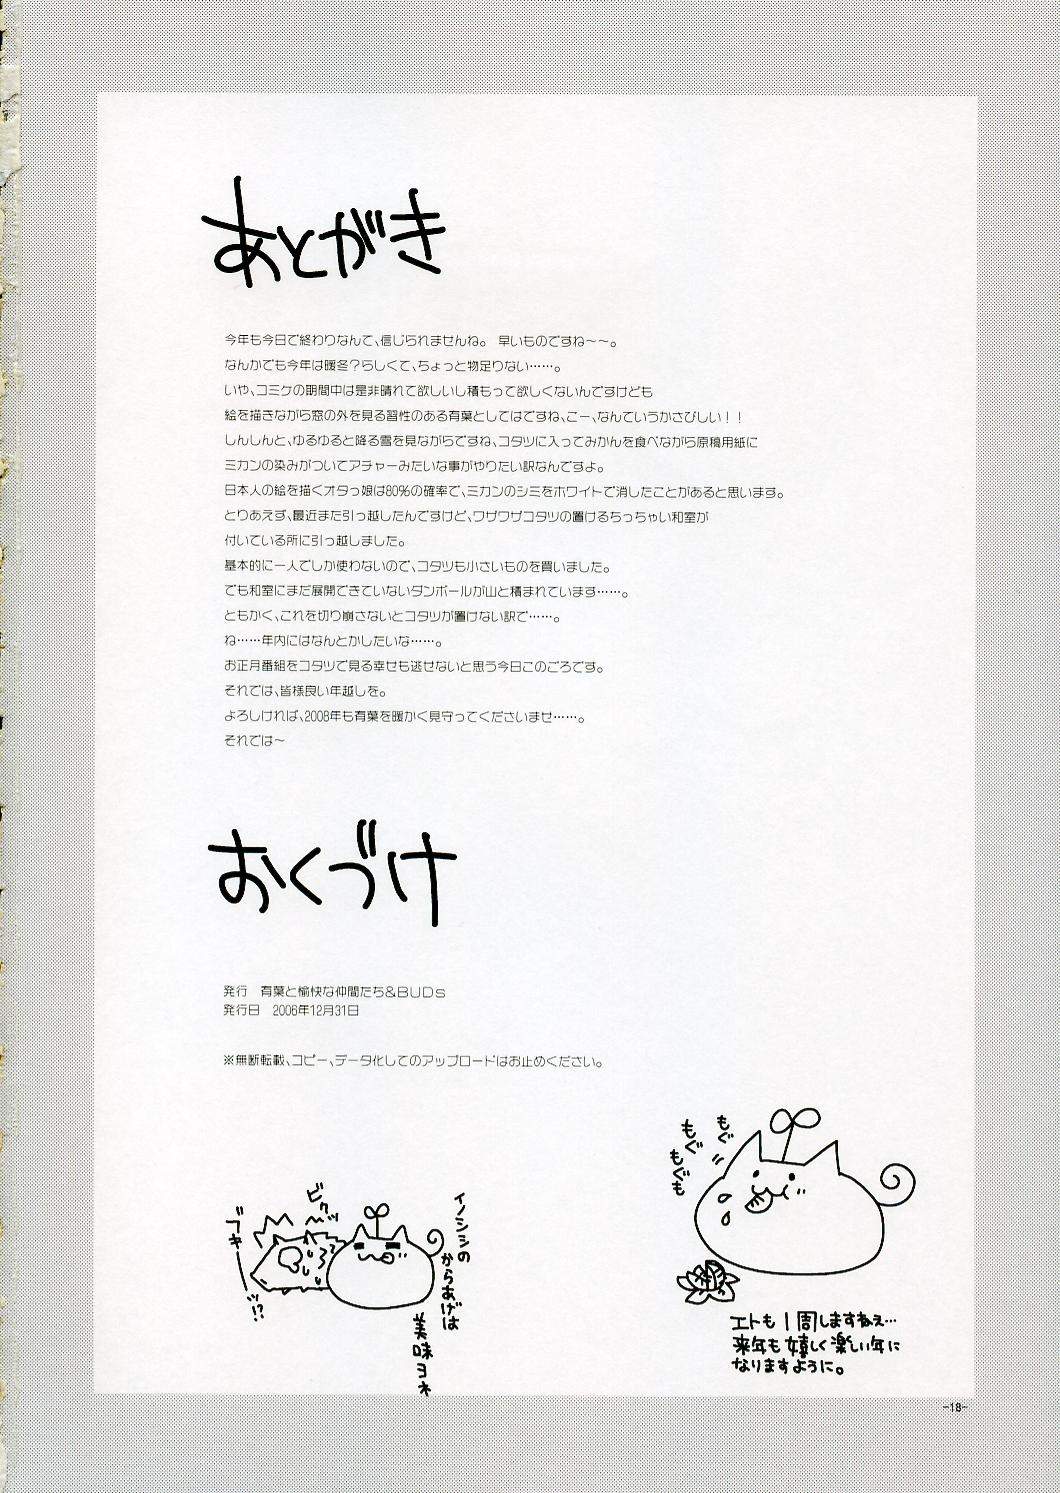 あとがき
今年も今日で終わりなんて、信じられませんね。 早いものですね～～。
なんかでも今年は暖冬？らしくて、ちょっと物足りない……。
いや、コミケの期間中は是非晴れて欲しいし積もって欲しくないんですけども
絵を描きながら窓の外を見る習性のある有葉としてはですね、こー、なんていうかさびしい！！
しんしんと、ゆるゆると降る雪を見ながらですね、コタツに入ってみかんを食べながら原稿用紙に
ミカンの染みがついてアチャーみたいな事がやりたい訳なんですよ。
日本人の絵を描くオタっ娘は80%の確率で、ミカンのシミをホワイトで消したことがあると思います。
とりあえず、最近また引っ越したんですけど、ワザワザコタツの置けるちっちゃい和室が
付いている所に引っ越しました。
基本的に一人でしか使わないので、コタツも小さいものを買いました。
でも和室にまだ展開できていないダンボールが山と積まれています……。
ともかく、これを切り崩さないとコタツが置けない訳で……。
ね……年内にはなんとかしたいな……。
お正月番組をコタツで見る幸せも逃せないと思う今日このごろです。
それでは、皆様良い年越しを。
よろしければ、2008年も有葉を暖かく見守ってくださいませ……。
それでは～
おくづけ
発行　有葉と愉快な仲間たち&BUDs
発行日　2006年12月31日
※無断転載、コピー、データ化してのアップロードはお止めください。
もぐ
もぐ
もぐも
イノシシの
からあげは
美味ヨネ
ビクッ
ブキーッ!?
エトも1周しますねぇ…
来年も嬉しく楽しい年に
なりますように。
-18-